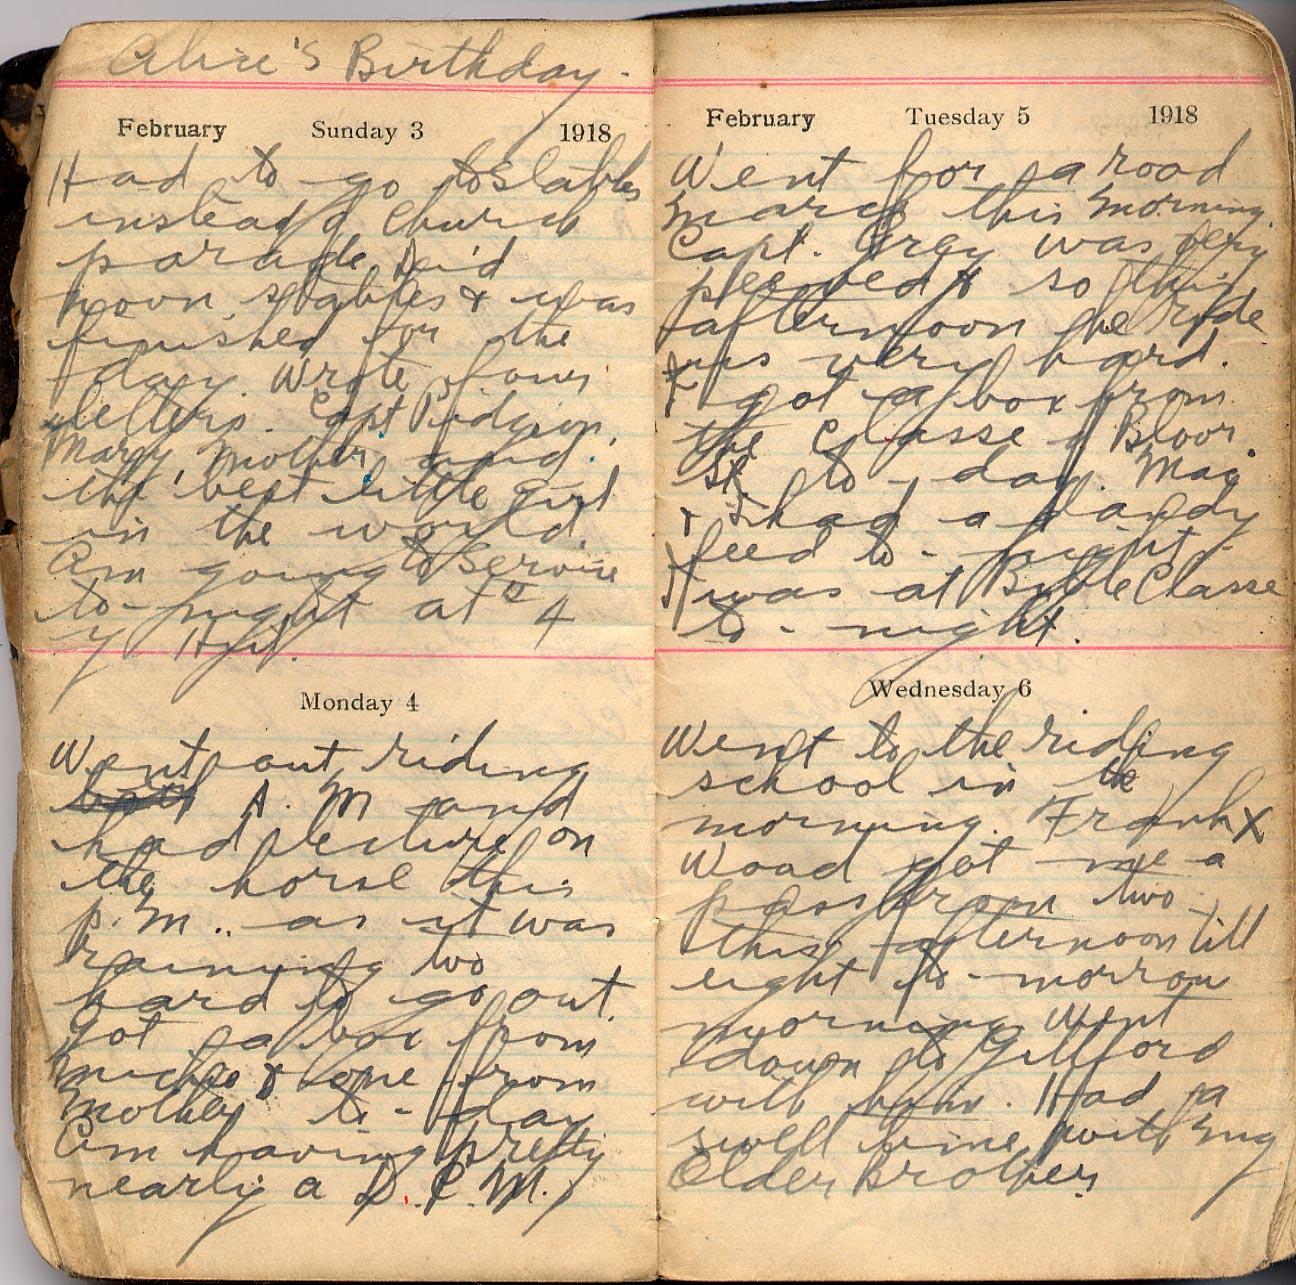 Alice's Birthday.
February Sunday 3 1918
Had to go to stables
instead of Church
parade. Did
noon stables & was
finished for the
day. Wrote four
letters. Capt Pidgeon,
Mary, Mother, and
the best little girl
in the world.
Am going to service
to-night at 4
Y Hut.
Monday 4
Went out riding
A. M and
had lecture on
the horse this
p. M.. as it was
raining too
hard to go out.
Got a box from
& one from
Mother to-day
Am having pretty
nearly a D. C. M.
February Tuesday 5 1918
Went for a road
march this morning.
Capt. Grey was very
peeved & so this
afternoon the ride
was very hard.
I got a box from
the Classe of Bloor
St. to-day. Mac
& I had a dandy
feed to-night.
I was at Bible Classe
to-night.
Wednesday 6
Went to the riding
school in the
morning. Frank X
Wood got me a
pass from two
this afternoon till
eight to-morrow
morning. Went
down to Gillford
with him. Had a
swell time with my
Elder Brother